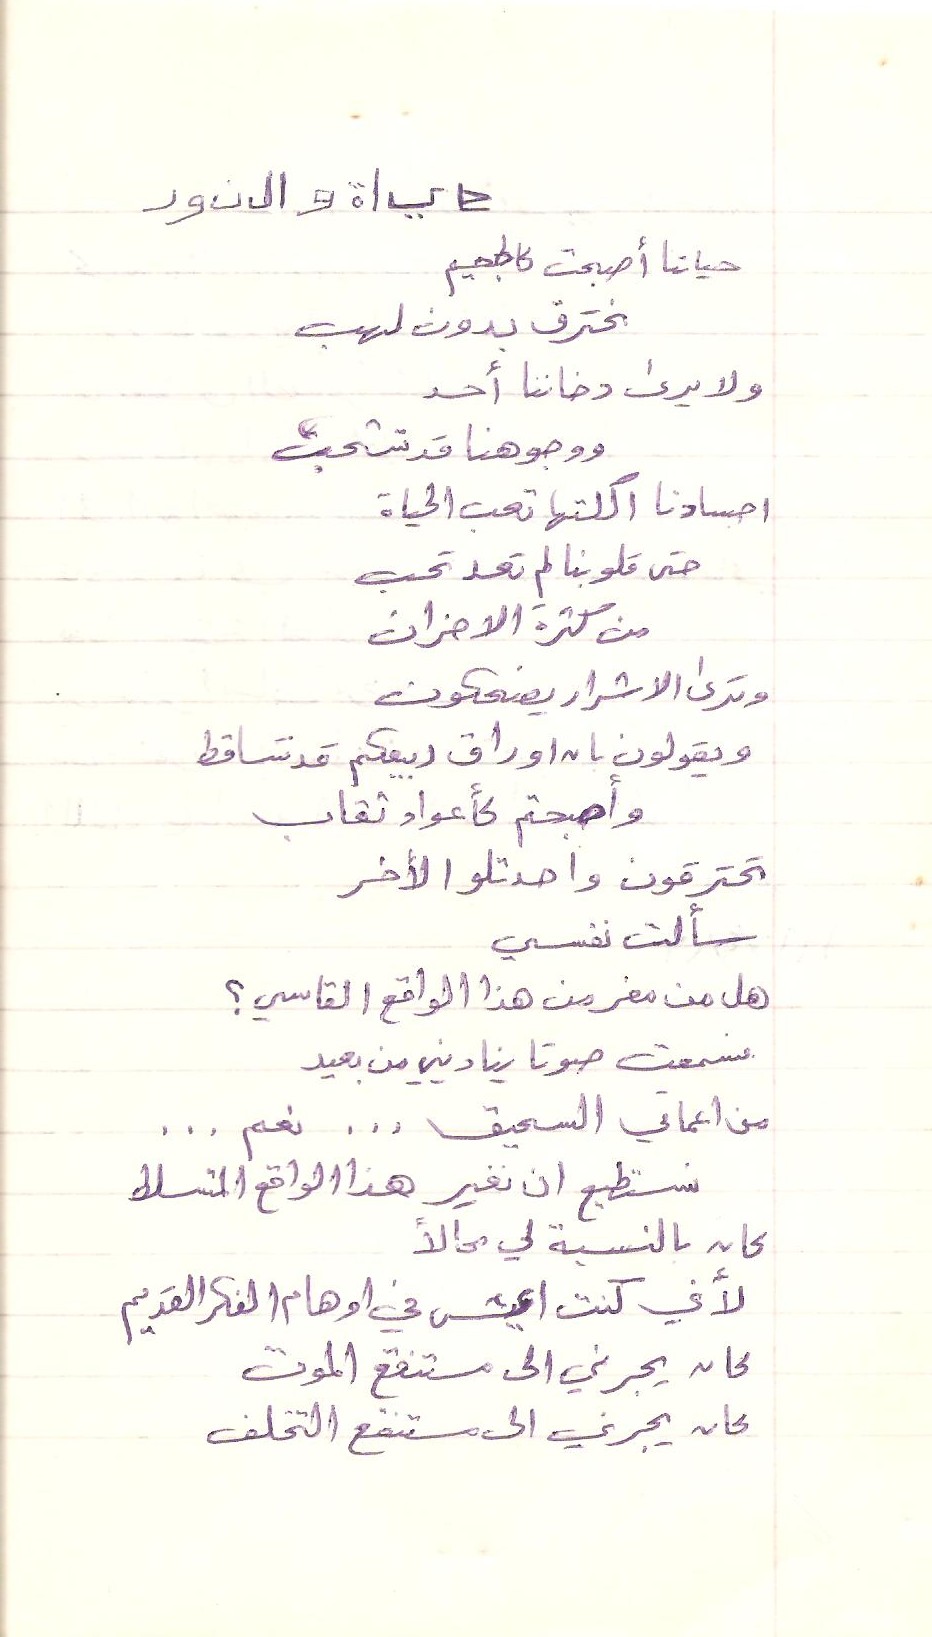 حياة والنور
حياتنا أصبحت كالجحيم
نحترق بدون لهب
ولا يرى دخاننا أحد
ووجوهنا قد شحبت
اجسادنا اكلتها تعب الحياة
حتى قلوبنا لم تعد تحب
من كثرة الاحزان
وترى الاشرار يضحكون
ويقولون بان اوراق ربيعكم قد تساقط
وأصبحتم كأعواد ثقاب
تحترقون واحد تلوا الأخر
سألت نفسي
هل من مفر من هذا الواقع القاسي؟
سمعت صوتا يناديني من بعيد
من اعماقي السحيق ... نعم ...
نستطيع ان نغير هذا الواقع المتسلط
كان بالنسبة لي محالاً
لأني كنت اعيش في اوهام الفكر القديم
كان يجرني الى مستنقع الموت
كان يجرني الى مستنقع التخلف